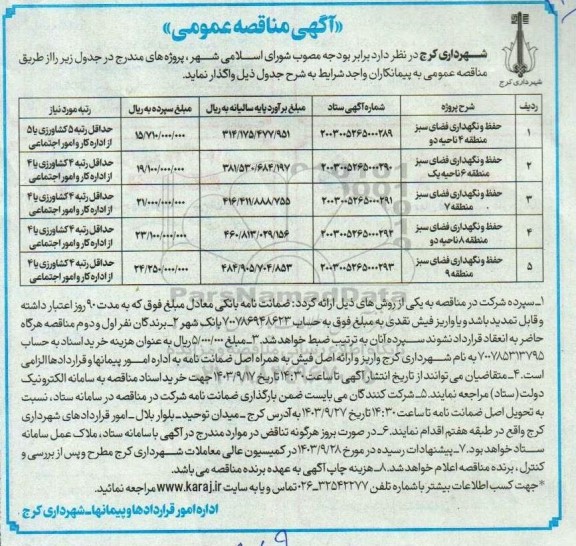 «آگهی مناقصه عمومی»
شهرداری کرج
شهرداری کرج در نظر دارد برابر بودجه مصوب شورای اسلامی شهر، پروژه‌های مندرج در جدول زیر را از طریق
مناقصه عمومی به پیمانکاران واجد شرایط به شرح جدول ذیل واگذار نماید.
ردیف شرح پروژه شماره آگهی ستاد مبلغ برآورد پایه سالیانه به ریال مبلغ سپرده به ریال رتبه مورد نیاز
۱ حفظ و نگهداری فضای سبز منطقه ۴ ناحیه دو ۲۰۰۳۰۰۵۲۶۵۰۰۰۲۸۹ ۳۱۴/۱۷۵/۴۷۷/۹۵۱ ۱۵/۷۱۰/۰۰۰/۰۰۰ حداقل رتبه ۵ کشاورزی یا ۵ از اداره کار و امور اجتماعی
۲ حفظ و نگهداری فضای سبز منطقه ۶ ناحیه یک ۲۰۰۳۰۰۵۲۶۵۰۰۰۲۹۰ ۳۸۱/۵۳۰/۶۸۴/۱۹۷ ۱۹/۱۰۰/۰۰۰/۰۰۰ حداقل رتبه ۴ کشاورزی یا ۴ از اداره کار و امور اجتماعی
۳ حفظ و نگهداری فضای سبز منطقه ۷ ۲۰۰۳۰۰۵۲۶۵۰۰۰۲۹۱ ۴۱۶/۴۱۱/۸۸۸/۷۵۵ ۲۱/۰۰۰/۰۰۰/۰۰۰ حداقل رتبه ۴ کشاورزی یا ۴ از اداره کار و امور اجتماعی
۴ حفظ و نگهداری فضای سبز منطقه ۸ ناحیه دو ۲۰۰۳۰۰۵۲۶۵۰۰۰۲۹۲ ۴۶۰/۸۱۳/۰۲۹/۱۵۶ ۲۳/۱۰۰/۰۰۰/۰۰۰ حداقل رتبه ۴ کشاورزی یا ۴ از اداره کار و امور اجتماعی
۵ حفظ و نگهداری فضای سبز منطقه ۹ ۲۰۰۳۰۰۵۲۶۵۰۰۰۲۹۳ ۴۸۴/۹۰۵/۷۰۴/۸۵۳ ۲۴/۲۵۰/۰۰۰/۰۰۰ حداقل رتبه ۴ کشاورزی یا ۴ از اداره کار و امور اجتماعی
ParsNamadData
۱ـ سپرده شرکت در مناقصه به یکی از روش‌های ذیل ارائه گردد: ضمانت نامه بانکی معادل مبلغ فوق که به مدت ۹۰ روز اعتبار داشته
و قابل تمدید باشد و یا واریز فیش نقدی به مبلغ فوق به حساب ۷۰۰۷۸۶۹۴۸۶۲۳ بانک شهر ۲ـ برندگان نفر اول و دوم مناقصه هرگاه
حاضر به انعقاد قرارداد نشوند سپرده آنان به ترتیب ضبط خواهد شد. ۳ـ مبلغ ۵/۰۰۰/۰۰۰ ریال به عنوان هزینه خرید اسناد به حساب
۷۰۰۷۸۵۳۱۳۷۹۵ به نام شهرداری کرج واریز و ارائه اصل فیش به همراه اصل ضمانت نامه به اداره امور پیمانها و قراردادها الزامی
است. ۴ـ متقاضیان می توانند از تاریخ انتشار آگهی تا ساعت ۱۴:۳۰ تاریخ ۱۴۰۳/۹/۱۷ جهت خرید اسناد مناقصه به سامانه الکترونیک
دولت (ستاد) مراجعه نمایند. ۵ـ شرکت کنندگان می بایست ضمن بارگذاری ضمانت نامه شرکت در مناقصه در سامانه ستاد، نسبت
به تحویل اصل ضمانت نامه تا ساعت ۱۴:۳۰ تاریخ ۱۴۰۳/۹/۲۷ به آدرس کرج ـ میدان توحید ـ بلوار بلال ـ امور قراردادهای شهرداری
کرج واقع در طبقه هفتم اقدام نمایند. ۶ـ در صورت بروز هرگونه تناقض در موارد مندرج در آگهی با سامانه ستاد، ملاک عمل سامانه
ستاد خواهد بود. ۷ـ پیشنهادات رسیده در مورخ ۱۴۰۳/۹/۲۸ در کمیسیون عالی معاملات شهرداری کرج مطرح و پس از بررسی و
کنترل، برنده مناقصه اعلام خواهد شد. ۸ـ هزینه چاپ آگهی به عهده برنده مناقصه می باشد.
*جهت کسب اطلاعات بیشتر با شماره تلفن ۳۲۵۴۲۲۷۷ـ۰۲۶ تماس و یا به سایت www.karaj.ir مراجعه نمائید.
اداره امور قراردادها و پیمانها ـ شهرداری کرج